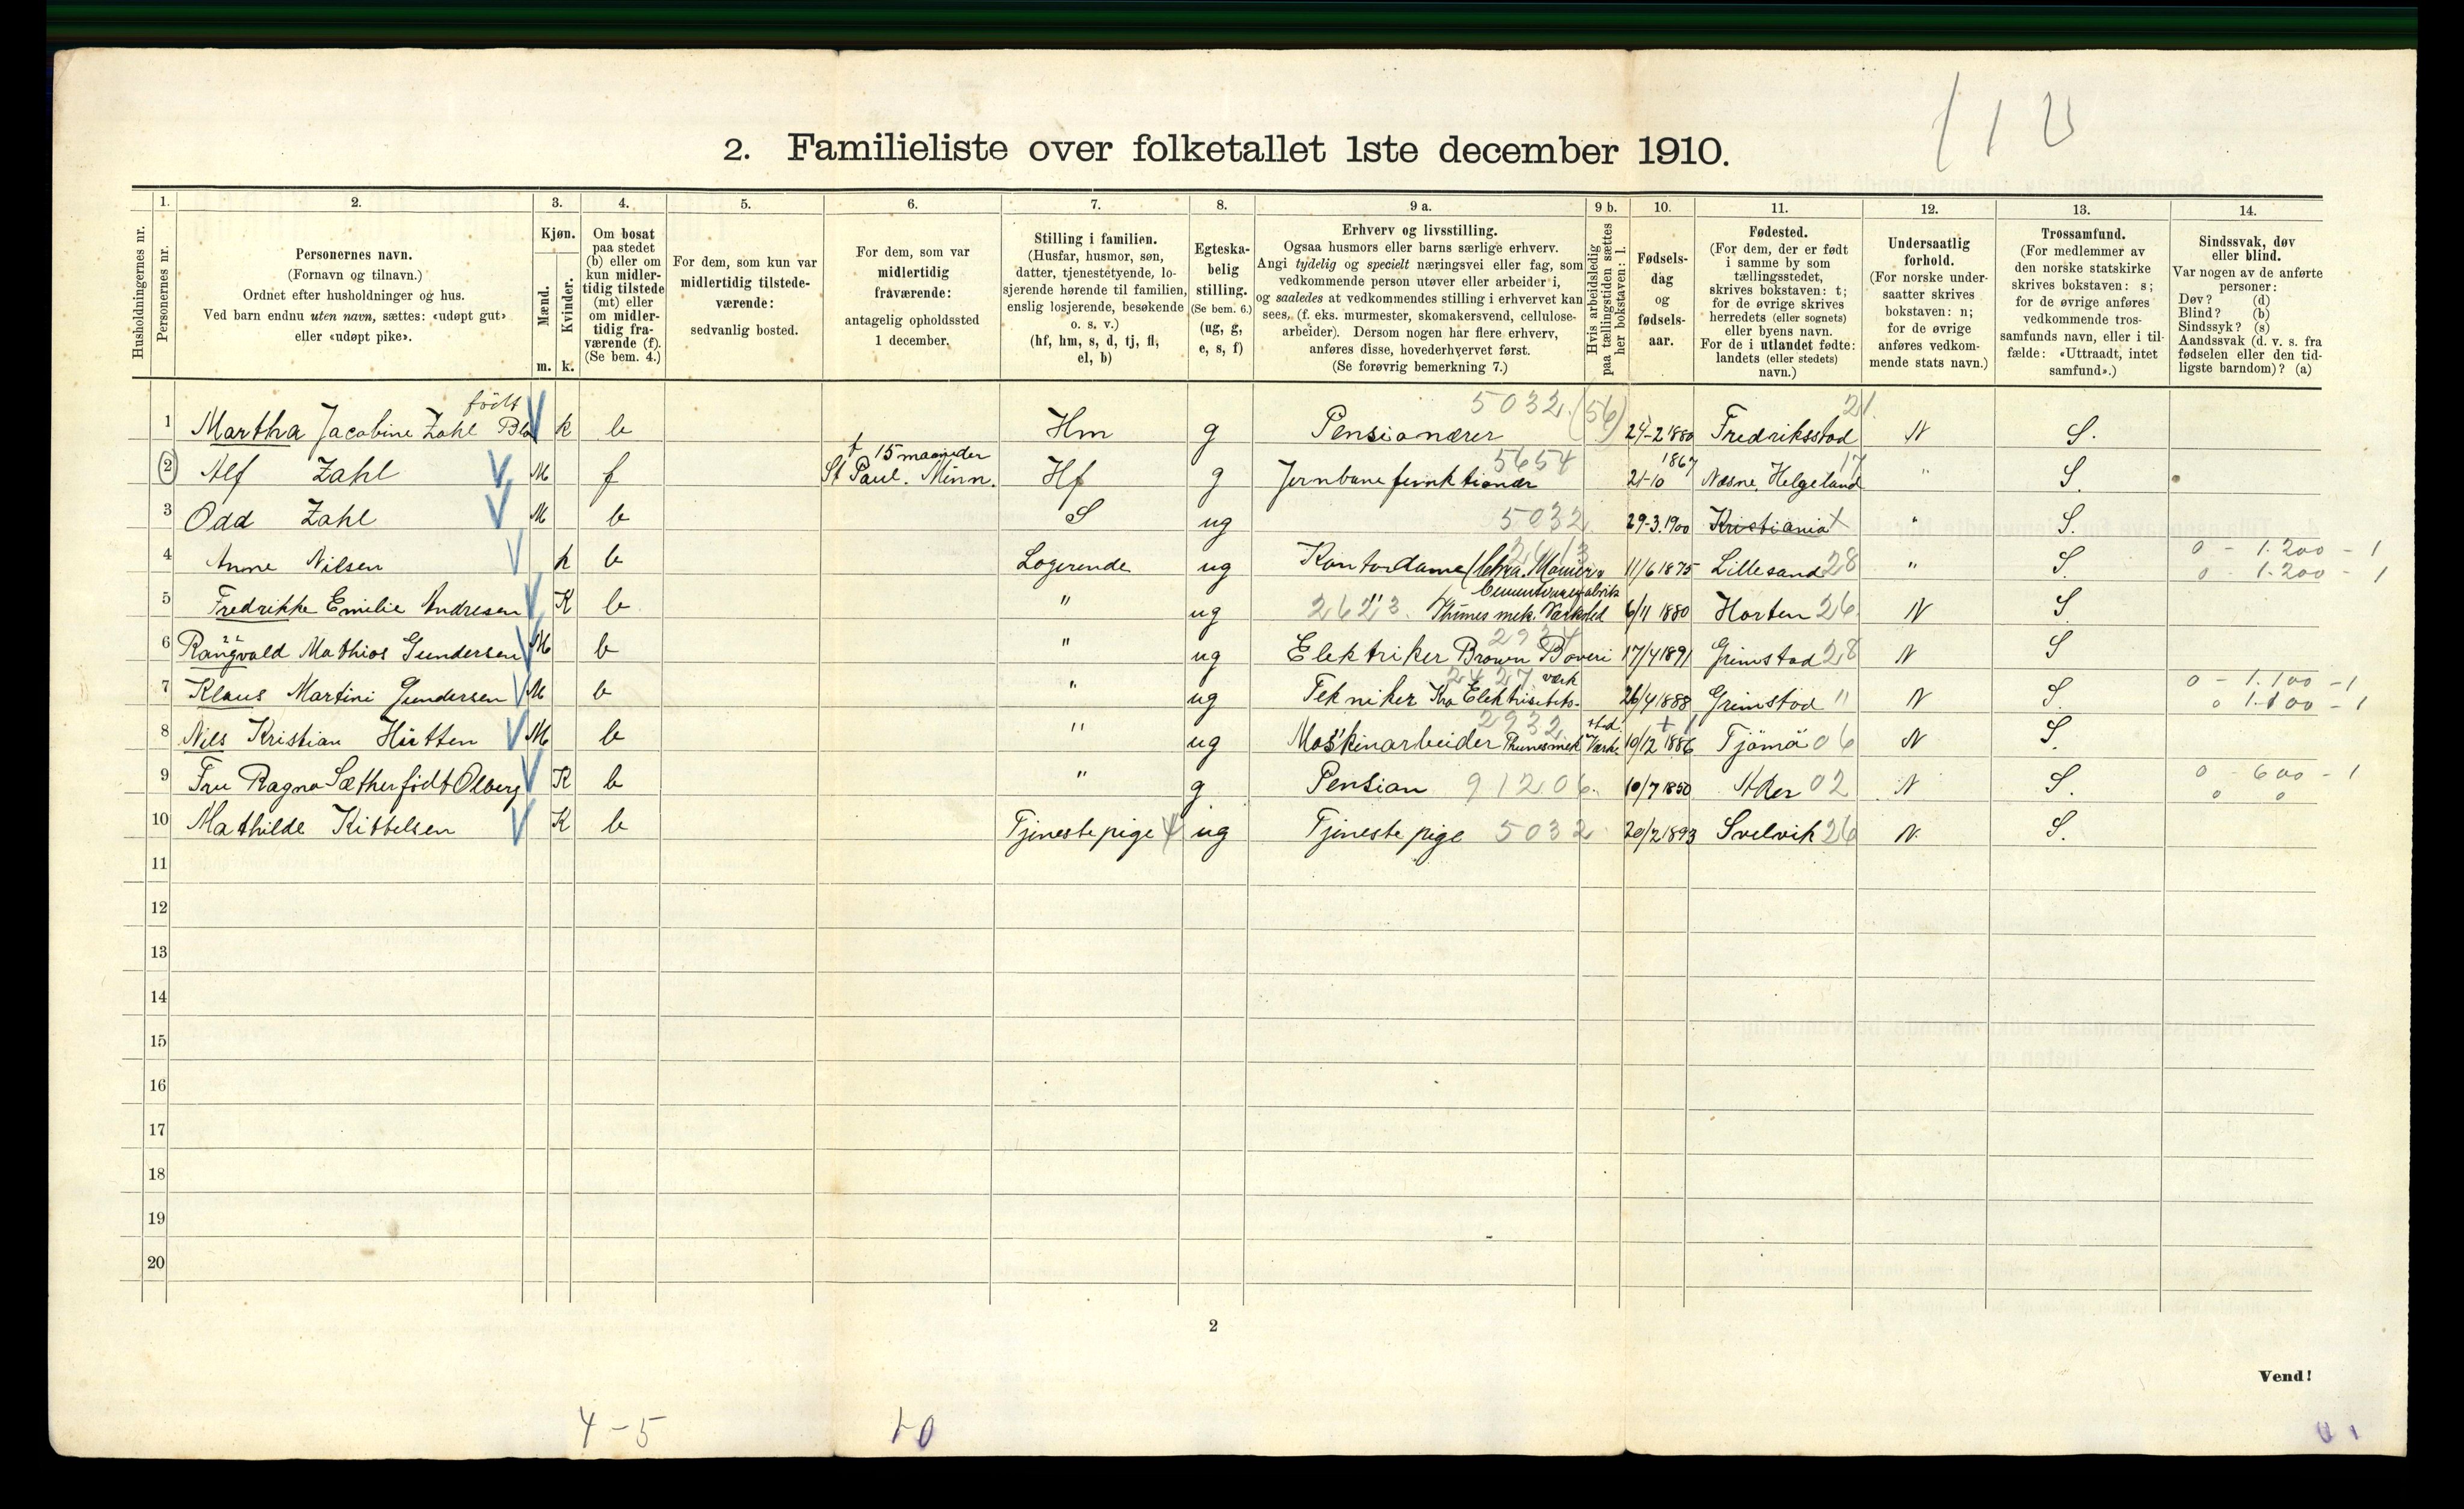 110
2. Familieliste over folketallet 1ste december 1910.
Husholdningernes nr.
1. Personernes nr.
2. Personernes navn.
(Fornavn og tilnavn.)
Ordnet efter husholdninger og hus.
Ved barn endnu uten navn, sættes: «udøpt gut»
eller «udøpt pike».
3. Kjøn.
Mænd. m.
Kvinder. k.
4. Om bosat
paa stedet
(b) eller om
kun midler-
tidig tilstede
(mt) eller
om midler-
tidig fra-
værende (f).
(Se bem. 4.)
5. For dem, som kun var
midlertidig tilstede-
værende:
sedvanlig bosted.
6. For dem, som var
midlertidig
fraværende:
antagelig opholdssted
1 december.
7. Stilling i familien.
(Husfar, husmor, søn,
datter, tjenestetyende, lo-
sjerende hørende til familien,
enslig losjerende, besøkende
o. s. v.)
(hf, hm, s, d, tj, fl,
el, b)
8. Egteska-
belig
stilling.
(Se bem. 6.)
(ug, g,
e, s, f)
9 a. Erhverv og livsstilling.
Ogsaa husmors eller barns særlige erhverv.
Angi tydelig og specielt næringsvei eller fag, som
vedkommende person utøver eller arbeider i,
og saaledes at vedkommendes stilling i erhvervet kan
sees, (f. eks. murmester, skomakersvend, cellulose-
arbeider). Dersom nogen har flere erhverv,
anføres disse, hovederhvervet først.
(Se forøvrig bemerkning 7.)
9 b. Hvis arbeidsledig
paa tællingstiden sættes
her bokstaven: l.
10. Fødsels-
dag
og
fødsels-
aar.
11. Fødested.
(For dem, der er født
i samme by som
tællingsstedet,
skrives bokstaven: t;
for de øvrige skrives
herredets (eller sognets)
eller byens navn.
For de i utlandet fødte:
landets (eller stedets)
navn.)
12. Undersaatlig
forhold.
(For norske under-
saatter skrives
bokstaven: n;
for de øvrige
anføres vedkom-
mende stats navn.)
13. Trossamfund.
(For medlemmer av
den norske statskirke
skrives bokstaven: s;
for de øvrige anføres
vedkommende tros-
samfunds navn, eller i til-
fælde: «Uttraadt, intet
samfund».)
14. Sindssvak, døv
eller blind.
Var nogen av de anførte
personer:
Døv? (d)
Blind? (b)
Sindssyk? (s)
Aandssvak (d. v. s. fra
fødselen eller den tid-
ligste barndom)? (a)
født 5032 (56) 21
1 Martha Jacobine Zahl k b Hm g Pensionærer 24-2 1880 Fredriksstad N S.
15 maaneder 5654 1867 17
2 Alf Zahl M f St Paul. Minn. Hf g Jernbanefunktionær 21-10 Næsne, Helgeland " S.
3 Odd Zahl M b S ug 5032 29-3.1900 Kristiania t " S.
0 - 1.200 - 1
4 Anne Nilsen k b Logerende ug Kontordame 11/6 1875 Lillesand 28 " S.
0 - 1.200 - 1
5 Fredrikke Emilie Andresen K b " ug 2623 " Thunes mek. Værksted 6/11 1880 Horten 26 N S
6 Rangvald Mathias Gundersen M b " ug Elektriker Brown Boveri 17/4 1891 Grimstad 28 N S
2427 værk 0 - 1.100 - 1
7 Klaus Martini Gundersen M b " ug Tekniker Kra Elektrisitets- 26/4 1888 Grimstad " N S.
2932
8 Nils Kristian Hütten M b " ug Maskinarbeider Thunes mek Værk. 10/12 1886 Tjömö 06 N S.
0 - 600 - 1
9 Fru Ragna Sæther født Olberg K b " g Pension 91206 10/7 1850 02 N S.
0 0
10 Mathilde Kittelsen K b Tjenestepige ug Tjenestepige 5032 20/2 1893 Svelvik 26 N. S.
11
12
13
14
15
16
17
18
19
20
2
Vend!
4-5 10